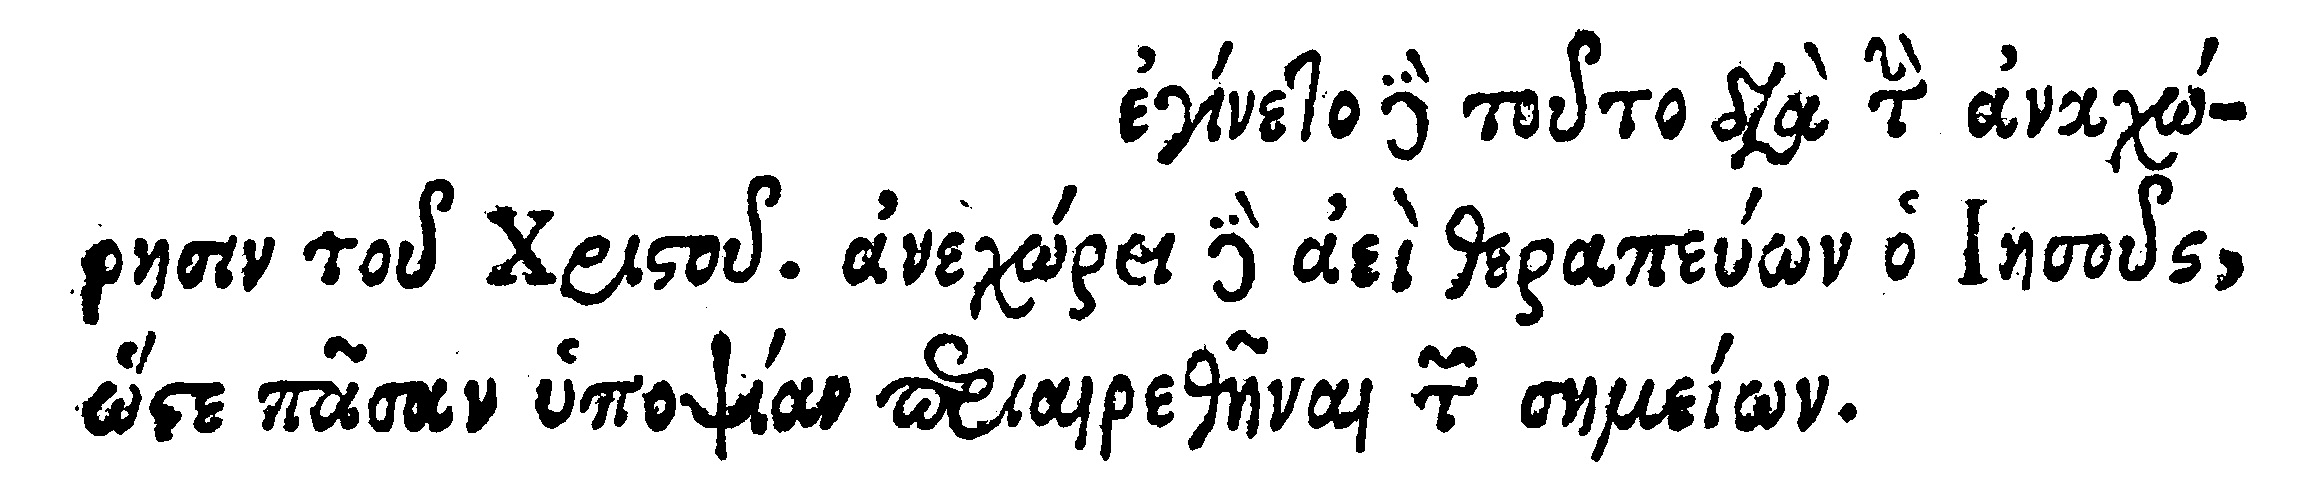 ἐγίνετο δὲ τοῦτο διὰ τὴν ἀναχώ-
ρησιν τοῦ Χριστοῦ. ἀνεχώρει δὲ ἀεὶ θεραπεύων ὁ Ιησοῦς,
ὥστε πᾶσαν ὑποψίαν περιαιρεθῆναι τῶν σημείων.